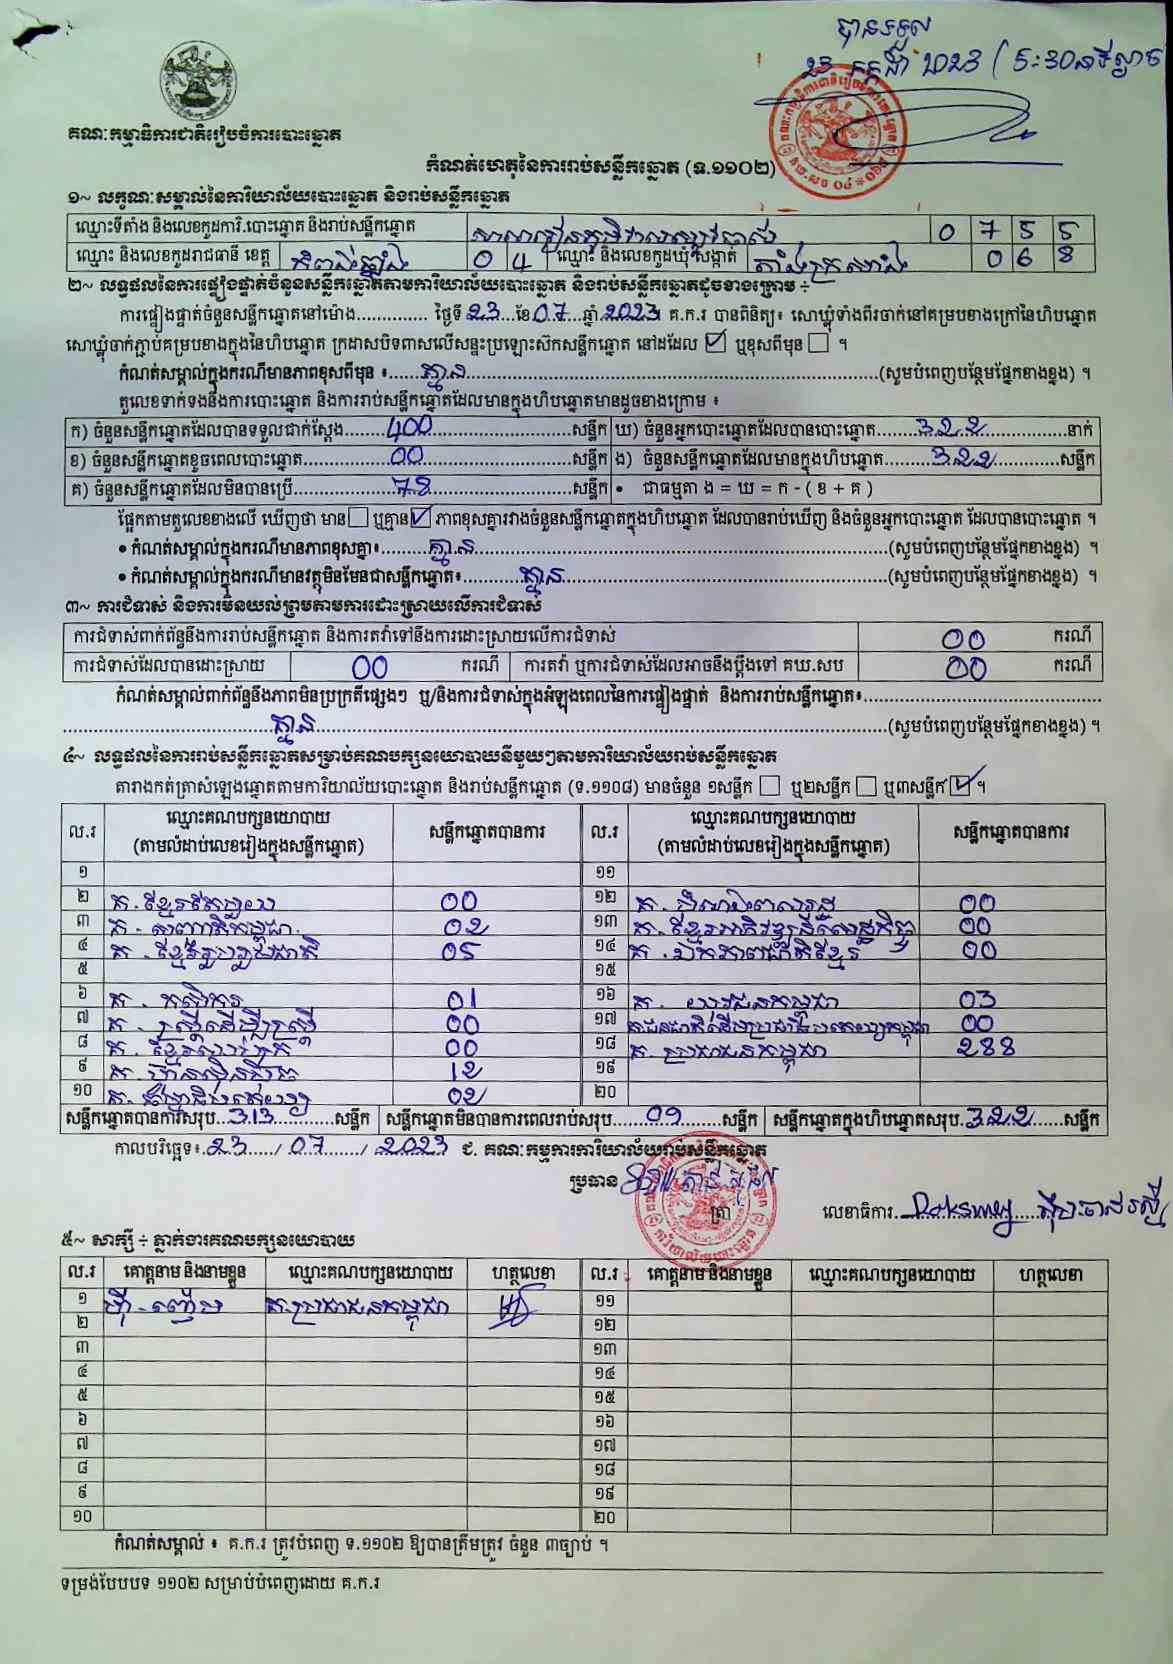 បានទទួល
23 កក្កដា 2023 / 5:30នាទីល្ងាច
គណៈកម្មាធិការជាតិរៀបចំការបោះឆ្នោត
កំណត់ហេតុនៃការរាប់សន្លឹកឆ្នោត (ទ.១១០២)
១~ លក្ខណៈសម្គាល់នៃការិយាល័យបោះឆ្នោត និងរាប់សន្លឹកឆ្នោត
ឈ្មោះទីតាំង និងលេខកូដការិ.បោះឆ្នោត និងរាប់សន្លឹកឆ្នោត 0 7 5 5
ឈ្មោះ និងលេខកូដរាជធានី ខេត្ត កំពង់ឆ្នាំង 0 4 ឈ្មោះ និងលេខកូដឃុំ សង្កាត់ តាំងក្រសាំង 0 6 8
២~ លទ្ធផលនៃការផ្ទៀងផ្ទាត់ចំនួនសន្លឹកឆ្នោតតាមការិយាល័យបោះឆ្នោត និងរាប់សន្លឹកឆ្នោតដូចខាងក្រោម ÷
ការផ្ទៀងផ្ទាត់ចំនួនសន្លឹកឆ្នោតនៅម៉ោង.............. ថ្ងៃទី 23 ខែ 07 ឆ្នាំ 2023 គ.ក.រ បានពិនិត្យ៖ សោឃ្លុំទាំងពីរចាក់នៅគម្របខាងក្រៅនៃហិបឆ្នោត
សោឃ្លុំចាក់ភ្ជាប់គម្របខាងក្នុងនៃហិបឆ្នោត ក្រដាសបិទពាសលើសន្ទះប្រឡោះសិកសន្លឹកឆ្នោត នៅដដែល ☑ ឬខុសពីមុន ☐ ។
កំណត់សម្គាល់ក្នុងករណីមានភាពខុសពីមុន ៖......គ្មាន......(សូមបំពេញបន្ថែមផ្នែកខាងខ្នង) ។
តួលេខទាក់ទងនឹងការបោះឆ្នោត និងការរាប់សន្លឹកឆ្នោតដែលមានក្នុងហិបឆ្នោតមានដូចខាងក្រោម ៖
ក) ចំនួនសន្លឹកឆ្នោតដែលបានទទួលជាក់ស្ដែង......400......សន្លឹក ឃ) ចំនួនអ្នកបោះឆ្នោតដែលបានបោះឆ្នោត......322......នាក់
ខ) ចំនួនសន្លឹកឆ្នោតខូចពេលបោះឆ្នោត......00......សន្លឹក ង) ចំនួនសន្លឹកឆ្នោតដែលមានក្នុងហិបឆ្នោត......322......សន្លឹក
គ) ចំនួនសន្លឹកឆ្នោតដែលមិនបានប្រើ......78......សន្លឹក • ជាធម្មតា ង = ឃ = ក - ( ខ + គ )
ផ្អែកតាមតួលេខខាងលើ ឃើញថា មាន ☐ ឬគ្មាន ☑ ភាពខុសគ្នារវាងចំនួនសន្លឹកឆ្នោតក្នុងហិបឆ្នោត ដែលបានរាប់ឃើញ និងចំនួនអ្នកបោះឆ្នោត ដែលបានបោះឆ្នោត ។
• កំណត់សម្គាល់ក្នុងករណីមានភាពខុសគ្នា៖......គ្មាន......(សូមបំពេញបន្ថែមផ្នែកខាងខ្នង) ។
• កំណត់សម្គាល់ក្នុងករណីមានវត្ថុមិនមែនជាសន្លឹកឆ្នោត៖......គ្មាន......(សូមបំពេញបន្ថែមផ្នែកខាងខ្នង) ។
៣~ ការជំទាស់ និងការមិនយល់ព្រមតាមការដោះស្រាយលើការជំទាស់
ការជំទាស់ពាក់ព័ន្ធនឹងការរាប់សន្លឹកឆ្នោត និងការតវ៉ាទៅនឹងការដោះស្រាយលើការជំទាស់ 00 ករណី
ការជំទាស់ដែលបានដោះស្រាយ 00 ករណី ការតវ៉ា ឬការជំទាស់ដែលអាចនឹងប្ដឹងទៅ គឃ.សប 00 ករណី
កំណត់សម្គាល់ពាក់ព័ន្ធនឹងភាពមិនប្រក្រតីផ្សេងៗ ឬ/និងការជំទាស់ក្នុងអំឡុងពេលនៃការផ្ទៀងផ្ទាត់ និងការរាប់សន្លឹកឆ្នោត៖......
......គ្មាន......(សូមបំពេញបន្ថែមផ្នែកខាងខ្នង) ។
៤~ លទ្ធផលនៃការរាប់សន្លឹកឆ្នោតសម្រាប់គណបក្សនយោបាយនីមួយៗតាមការិយាល័យរាប់សន្លឹកឆ្នោត
តារាងកត់ត្រាសំឡេងឆ្នោតតាមការិយាល័យបោះឆ្នោត និងរាប់សន្លឹកឆ្នោត (ទ.១១០៨) មានចំនួន ១សន្លឹក ☐ ឬ២សន្លឹក ☐ ឬ៣សន្លឹក ☑ ។
ល.រ ឈ្មោះគណបក្សនយោបាយ (តាមលំដាប់លេខរៀងក្នុងសន្លឹកឆ្នោត) សន្លឹកឆ្នោតបានការ ល.រ ឈ្មោះគណបក្សនយោបាយ (តាមលំដាប់លេខរៀងក្នុងសន្លឹកឆ្នោត) សន្លឹកឆ្នោតបានការ
១ ១១
២ គ. ខ្មែរតែមួយ 00 ១២ គ. 00
៣ គ. សញ្ជាតិកម្ពុជា 02 ១៣ គ. ខ្មែរអភិវឌ្ឍន៍សេដ្ឋកិច្ច 00
៤ គ. ខ្មែររួបរួមជាតិ 05 ១៤ គ. ឯកភាពជាតិខ្មែរ 00
៥ ១៥
៦ គ. កសិករ 01 ១៦ គ. យុវជនកម្ពុជា 03
៧ គ. ស្ត្រីដើម្បីស្ត្រី 00 ១៧ គ.ជនជាតិដើមប្រជាធិបតេយ្យកម្ពុជា 00
៨ គ. ខ្មែរឈប់ក្រ 00 ១៨ គ. ប្រជាជនកម្ពុជា 288
៩ គ. ហ៊្វុនស៊ិនប៉ិច 12 ១៩
១០ គ. ធម្មាធិបតេយ្យ 02 ២០
សន្លឹកឆ្នោតបានការសរុប..313......សន្លឹក សន្លឹកឆ្នោតមិនបានការពេលរាប់សរុប......09......សន្លឹក សន្លឹកឆ្នោតក្នុងហិបឆ្នោតសរុប..322......សន្លឹក
កាលបរិច្ឆេទ៖ 23 / 07 / 2023 ជ. គណៈកម្មការការិយាល័យរាប់សន្លឹកឆ្នោត
ប្រធាន
ត្រា
លេខាធិការ Raksmey
៥~ សាក្សី ÷ ភ្នាក់ងារគណបក្សនយោបាយ
ល.រ គោត្តនាម និងនាមខ្លួន ឈ្មោះគណបក្សនយោបាយ ហត្ថលេខា ល.រ គោត្តនាម និងនាមខ្លួន ឈ្មោះគណបក្សនយោបាយ ហត្ថលេខា
១ គ.ប្រជាជនកម្ពុជា ១១
២ ១២
៣ ១៣
៤ ១៤
៥ ១៥
៦ ១៦
៧ ១៧
៨ ១៨
៩ ១៩
១០ ២០
កំណត់សម្គាល់ ៖ គ.ក.រ ត្រូវបំពេញ ទ.១១០២ ឱ្យបានត្រឹមត្រូវ ចំនួន ៣ច្បាប់ ។
ទម្រង់បែបបទ ១១០២ សម្រាប់បំពេញដោយ គ.ក.រ